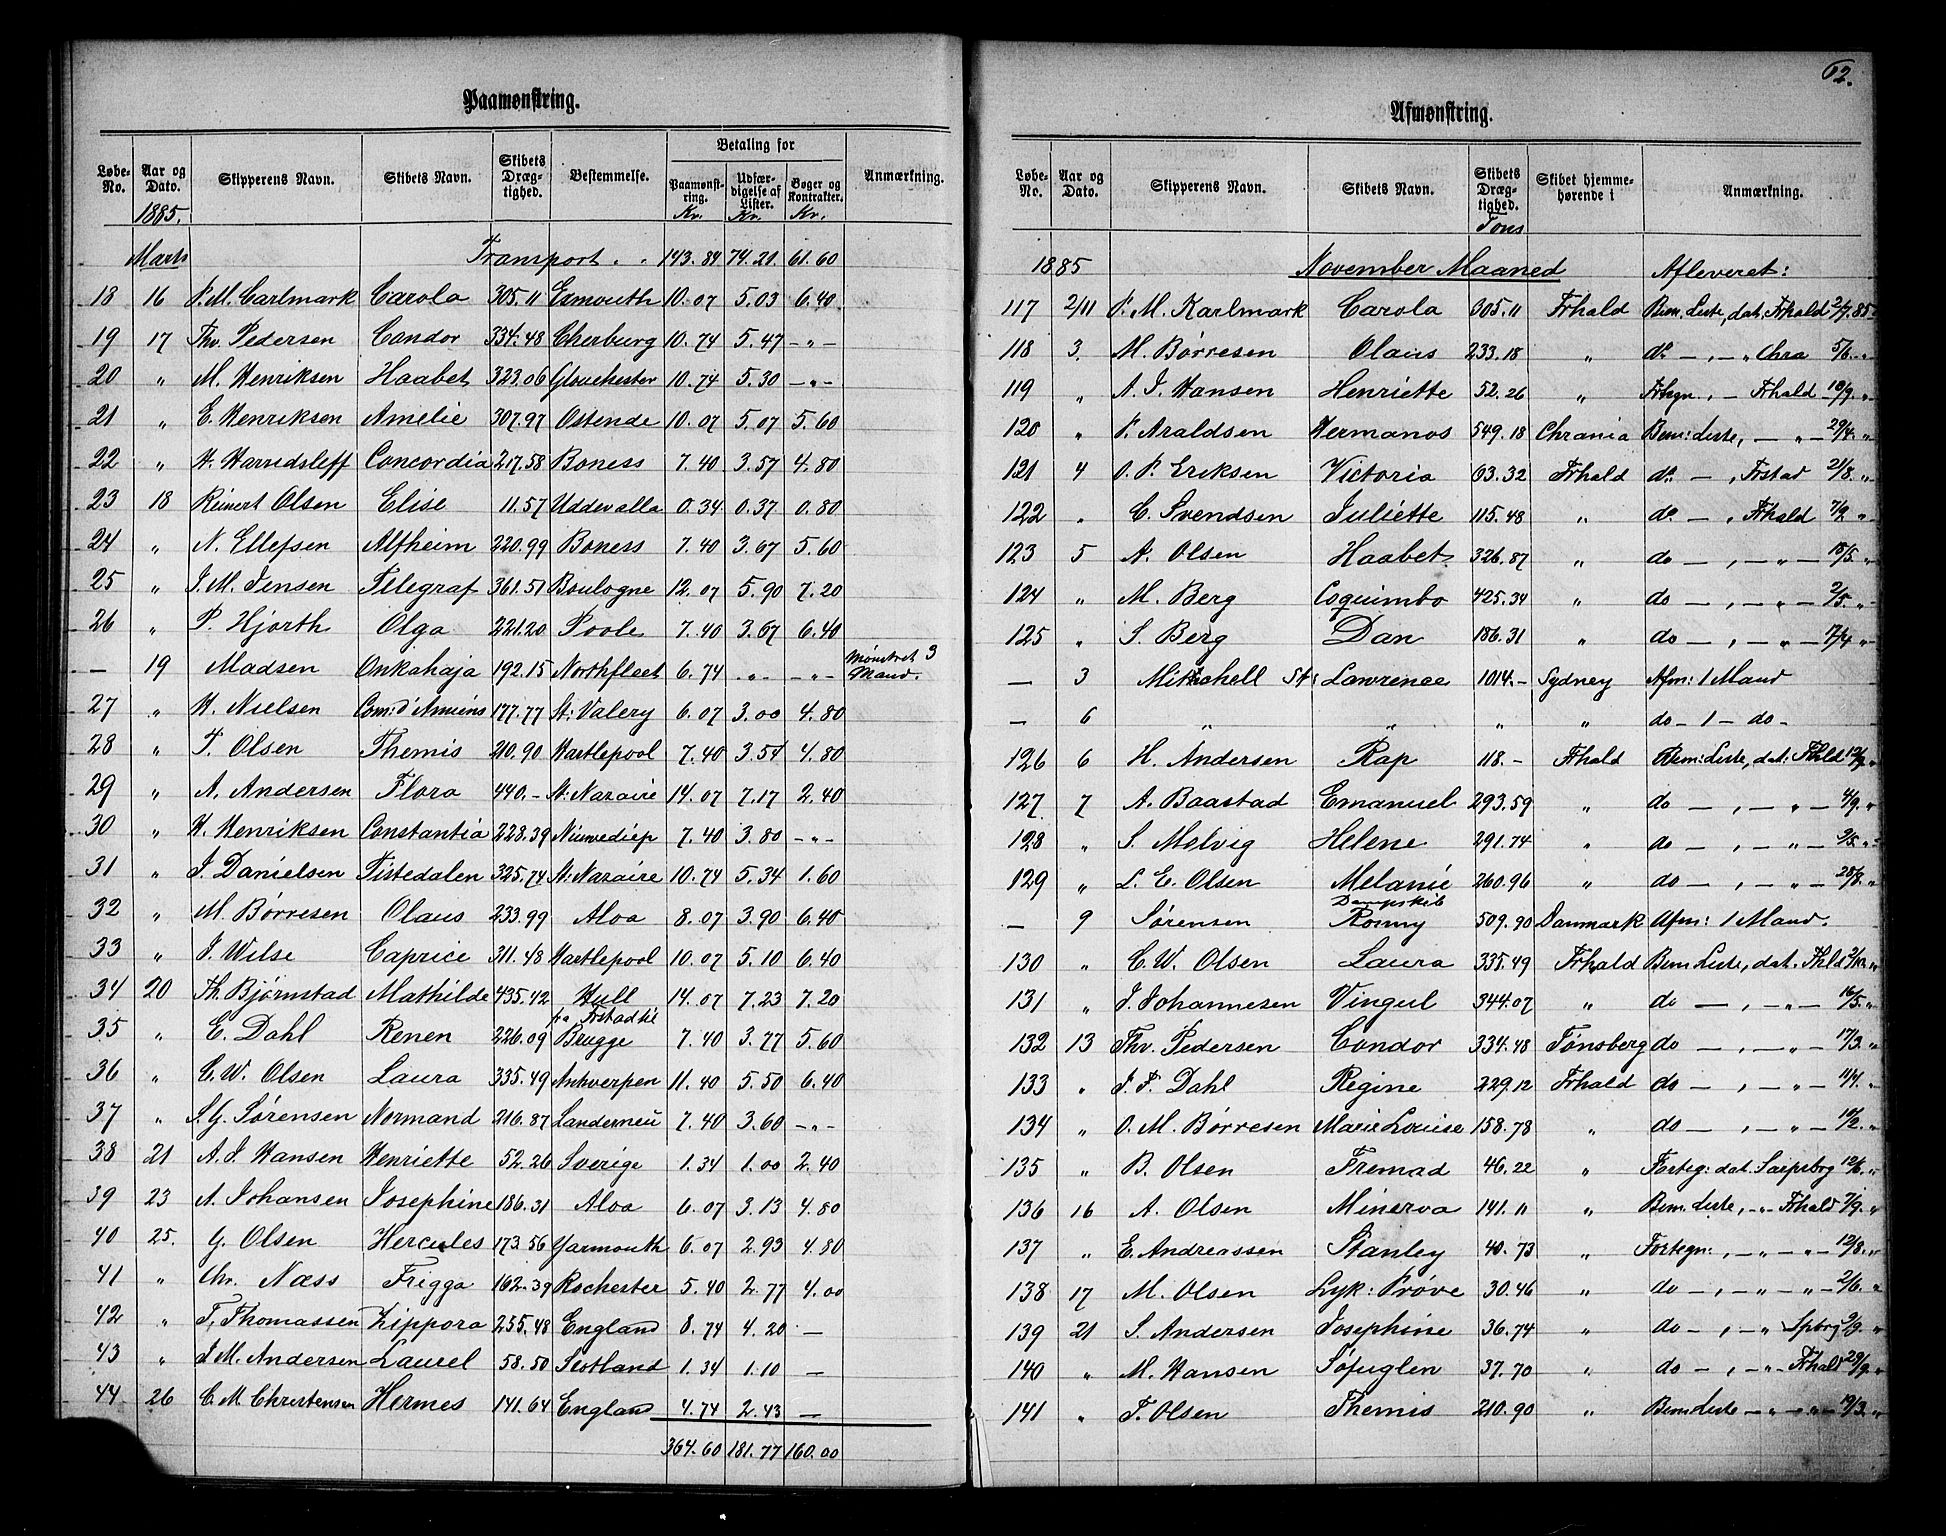 Paamønstring.
Løbe-No. | Aar og Dato. | Skipperens Navn. | Skibets Navn. | Skibets Dræg-tighed. | Bestemmelse. | Betaling for | Paamønst-ring. | Udfær-digelse af Lister. | Bøger og Kontrakter. | Anmærkning.
1885. Kr. Kr. Kr.
Marts Transport . . 143.84 74.21 61.60
18 16 P. M. Carlmark Carola 305.11 Exmouth 10.07 5.03 6.40
19 17 Thv. Pedersen Condor 334.48 Cherburg 10.74 5.47 -"-
20 " M. Henriksen Haabet 323.06 Glouchester 10.74 5.30 -"-
21 " E. Henriksen Amelie 307.97 Ostende 10.07 5.07 5.60
22 " H. Harridsleff Concordia 217.58 Boness 7.40 3.57 4.80
23 18 Reinert Olsen Elise 11.57 Uddevalla 0.34 0.37 0.80
24 " N. Ellefsen Alfheim 220.99 Boness 7.40 3.67 5.60
25 " J. M. Jensen Telegraf 361.51 Boulogne 12.07 5.90 7.20
26 " P. Hjorth Olga 221.20 Poole 7.40 3.67 6.40
— 19 Madsen Onkahaja 192.15 Northfleet 6.74 "- -"- Mønstret 3 Mand.
27 " H. Nielsen Com: d'Amiens 177.77 St: Valery 6.07 3.00 4.80
28 " T. Olsen Themis 210.90 Hartlepool 7.40 3.54 4.80
29 " A. Andersen Flora 440.- St: Nazaire 14.07 7.17 2.40
30 " H. Henriksen Constantia 228.39 Nieuwediep 7.40 3.80 -"-
31 " J. Danielsen Tistedalen 325.74 St: Nazaire 10.74 5.34 1.60
32 " M. Børresen Olaus 233.99 Aloa 8.07 3.90 6.40
33 " J. Wilse Caprice 311.48 Hartlepool 10.07 5.10 6.40
34 20 Th. Bjørnstad Mathilde 435.42 Hull 14.07 7.23 7.20
fra Frstad til
35 " E. Dahl Renen 226.09 Brugge 7.40 3.77 5.60
36 " C. W. Olsen Laura 335.49 Antverpen 11.40 5.50 6.40
37 " S. G. Sørensen Normand 216.87 Landerneu 7.40 3.60 -"-
38 21 A. J. Hansen Henriette 52.26 Sverige 1.34 1.00 2.40
39 23 A. Johansen Josephine 186.31 Aloa 6.07 3.13 4.80
40 25. G. Olsen Hercules 173.56 Yarmouth 6.07 2.93 4.80
41 " Chr. Næss Frigga 162.39 Rochester 5.40 2.77 4.00
42 " T. Thomassen Zippora 255.48 England 8.74 4.20 —
43 " J. M. Andersen Laurel 58.50 Scotland 1.34 1.10 —
44 26 C. M. Christensen Hermes 141.64 England 4.74 2.43 —
364.60 181.77 160.00
62.
Afmønstring.
Løbe-No. | Aar og Dato. | Skipperens Navn. | Skibets Navn. | Skibets Dræg-tighed. | Skibet hjemme-hørende i | Anmærkning.
Tons
1885 November Maaned Afleveret:
117 2/11 P. M. Karlmark Carola 305.11 Frhald Bem. Liste, dat. Frhald 2/7. 85
118 3. M. Børresen Olaus 233.18 " do — , — " Chra 5/6. "
119 " A. J. Hansen Henriette 52.26 " Frtegn. , — Frhald 18/9. "
120 " P. Araldsen Hermanos 549.18 Chrania Bem: Liste, — " — 29/4. "
121 4 O. P. Eriksen Victoria 63.32 Frhald do — , Frstad 21/8. "
122 " C. Svendsen Juliette 115.48 " do — , Frhald 7/9. "
123 5 A. Olsen Haabet 326.87 " do — , — " — 18/5. "
124 " M. Berg Coquimbo 425.34 " do — , — " — 2/5. "
125 " S. Berg Dan 186.31 " do — , — " — 17/4 "
— 3 Mittchell St: Lawrence 1014.- Sydney Afm: 1 Mand
— 6 " " " " do - 1 - do -
126 6 H. Andersen Rap 118.- Frhald Bem: Liste, dat: Fhld 12/9. "
127. 7 A. Baastad Emanuel 293.59 " do — , — " — 4/9. "
128 " S. Melvig Helene 291.74 " do — , — " — 9/5. "
129 " L. E. Olsen Melanie 260.96 " do — , — " — 28/8. "
Dampskib
— 9 Sørensen Ronny 509.90 Danmark Afm: 1 Mand.
130 " C. W. Olsen Laura 335.49 Frhald Bem Liste, dat. Fhld "
131 " J. Johannesen Vingul 344.07 " do — , — " — 16/5. "
132 13 Thv. Pedersen Condor 334.48 Tønsberg do — , — " — 17/3. "
133 " J. F. Dahl Regine 229.12 Frhald do — , — " — 11/4. "
134 " O. M. Børresen Marie Louise 158.78 " do — , — " — 10/2. "
135 " B. Olsen Fremad 46.22 " Forteg: dat. Sarpsborg 12/6. "
136 16 A. Olsen Minerva 141.11 " Bem. Liste, -"- Frhald 7/9. "
137 " E. Andreassen Stanley 40.73 " Fortegn: , — " — " — 12/8. "
138 17 M. Olsen Lyk: Prøve 30.46 " do — , — " — " — 2/6. "
139 21 S. Andersen Josephine 36.74 " do — , — " Spborg 9/9. "
140 " M. Hansen Søfuglen 37.70 " do — , — " - Frhald 29/9. "
141 " T. Olsen Themis 210.90 " Bem: Liste — " — " — 19/3. "